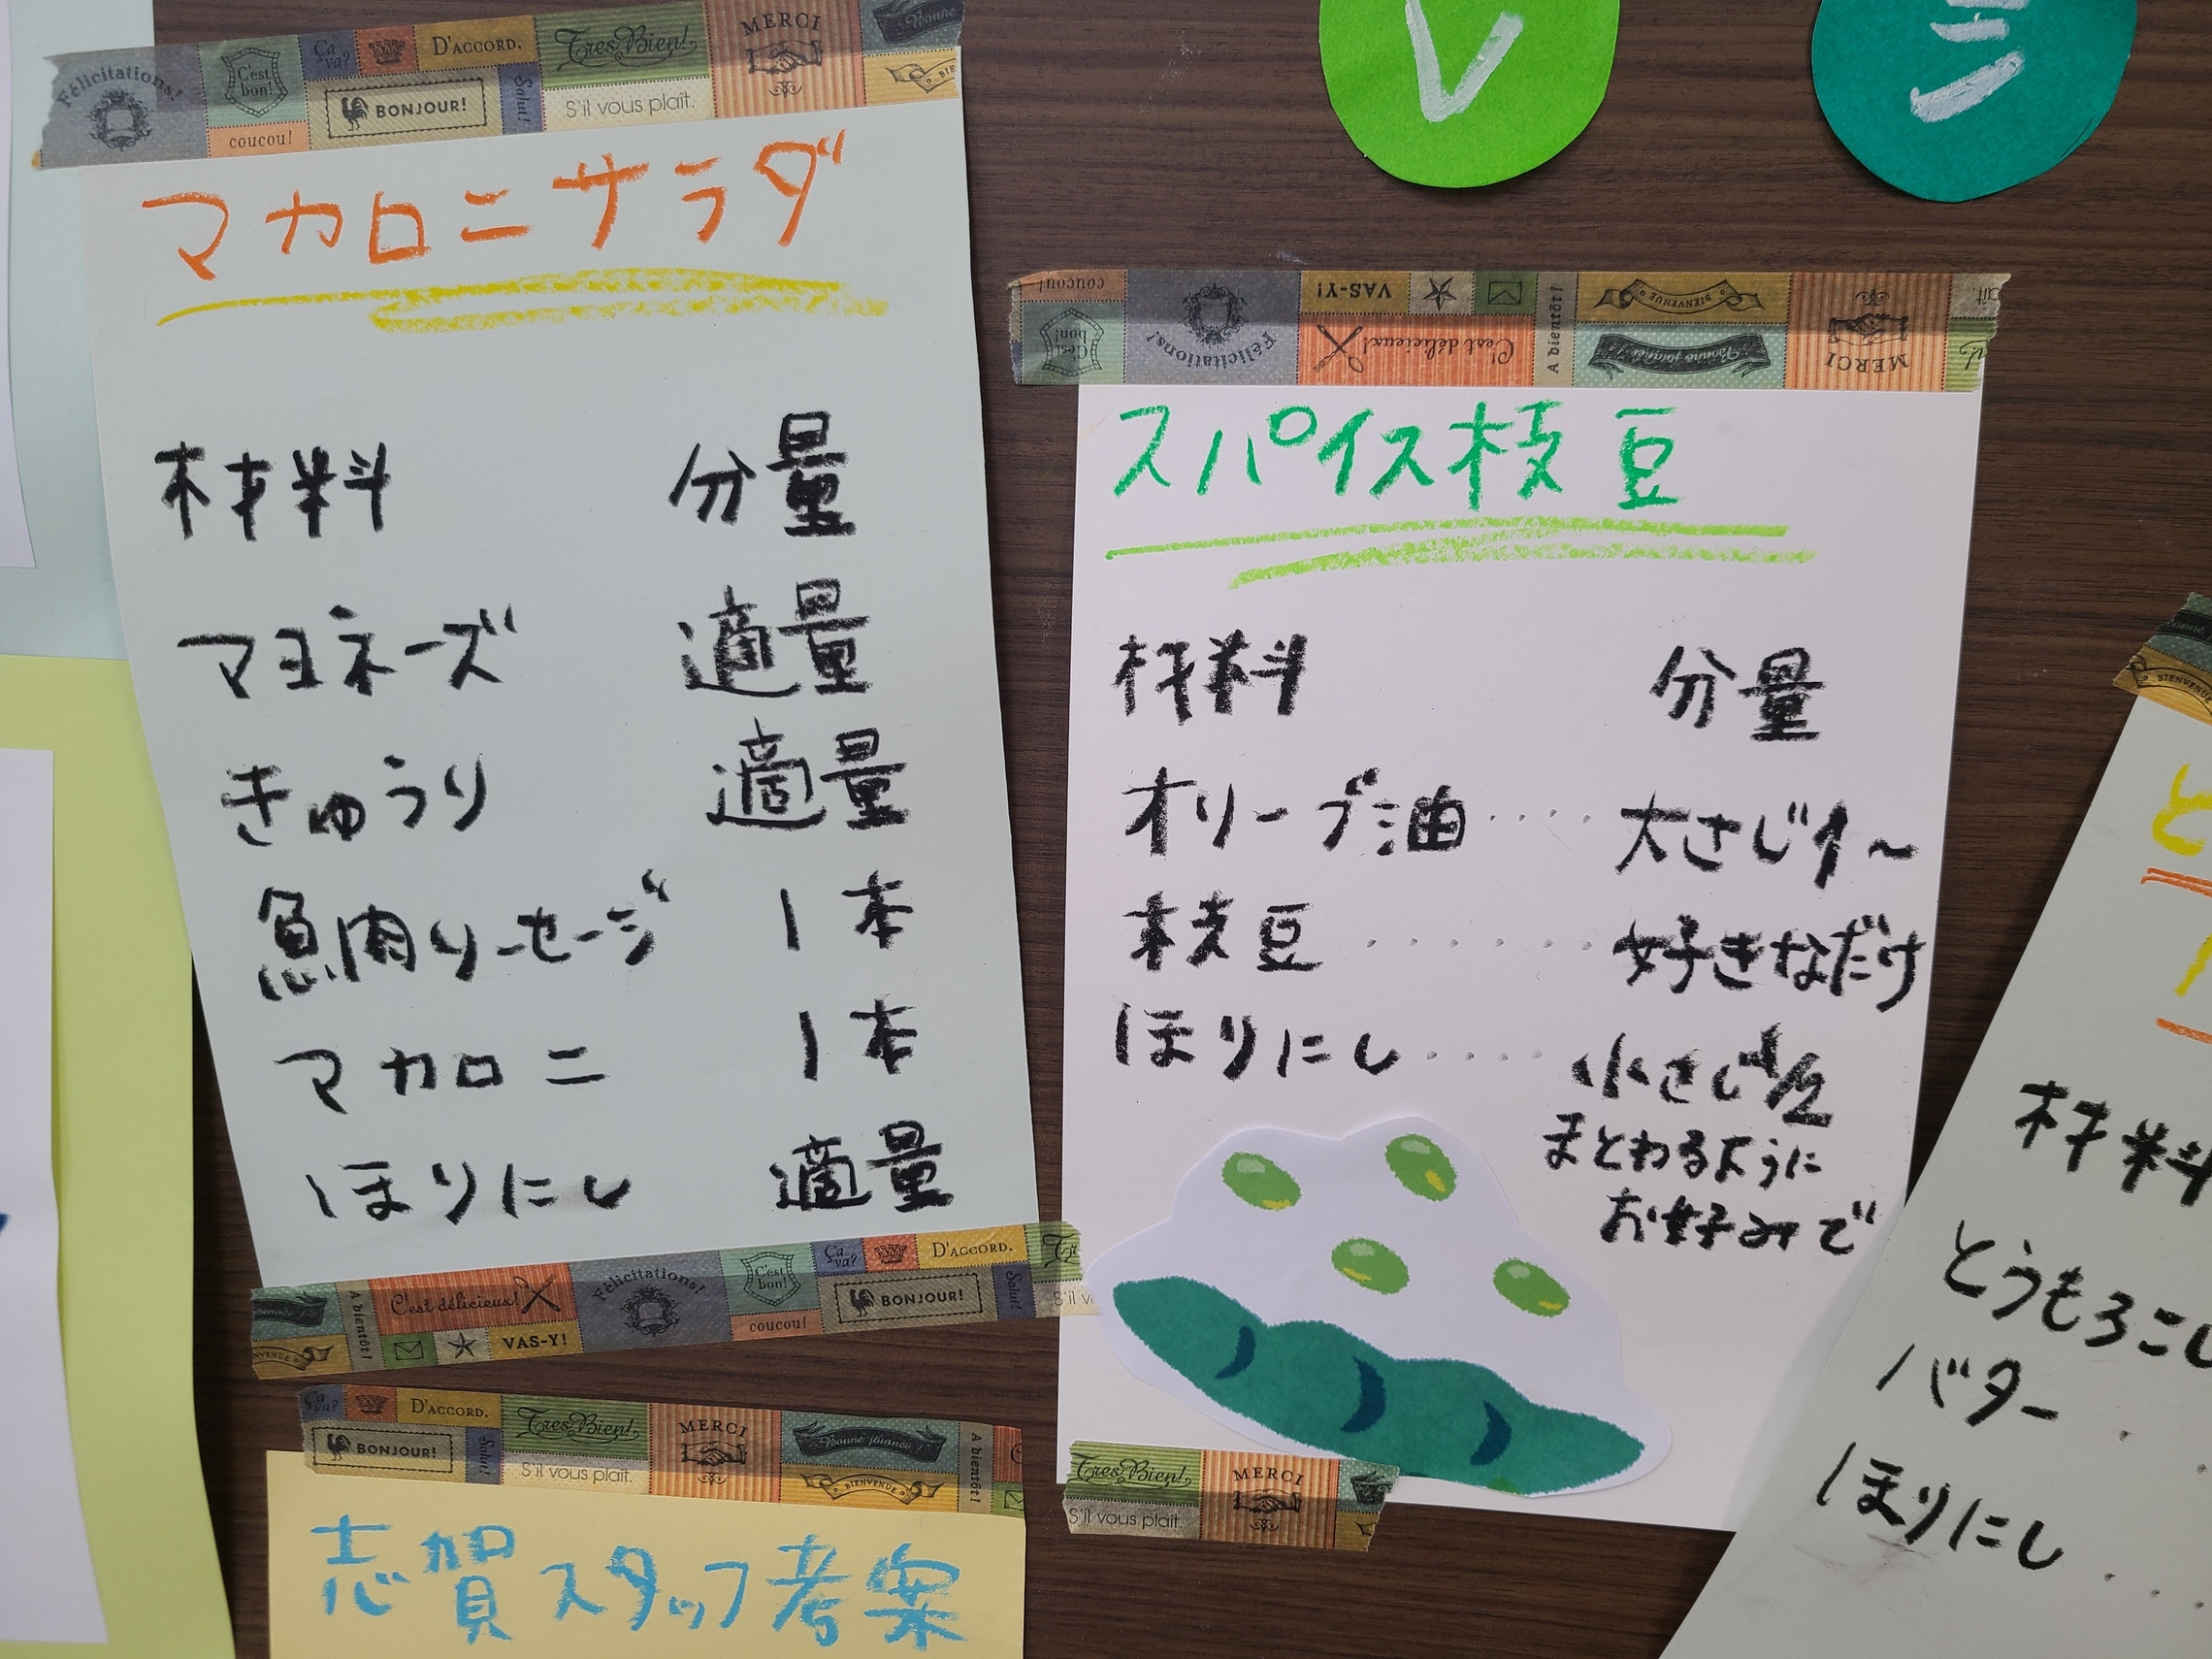 マカロニサラダ
材料 分量
マヨネーズ 適量
きゅうり 適量
魚肉ソーセージ 1本
マカロニ 1本
ほりにし 適量
志賀スタッフ考案
スパイス枝豆
材料 分量
オリーブ油 ････ 大さじ1〜
枝豆 ･･････ 好きなだけ
ほりにし ････ 小さじ1/2
まとわるように
お好みで
材料
とうもろこし
バター
ほりにし
Félicitations!
C'est bon!
coucou!
Ça va?
D'ACCORD.
BONJOUR!
Salut!
Tres Bien!
S'il vous plaît.
MERCI
coucou!
C'est bon!
Félicitations!
VAS-Y!
C'est délicieux!
A bientôt!
BIENVENUE
Bonne journée!
MERCI
A bientôt!
C'est délicieux!
VAS-Y!
Félicitations!
C'est bon!
coucou!
Ça va?
D'ACCORD.
BONJOUR!
Salut!
Ça va?
D'ACCORD.
BONJOUR!
Salut!
Tres Bien!
S'il vous plaît.
MERCI
Bonne journée!
BIENVENUE
A bientôt!
Tres Bien!
S'il vous plaît.
MERCI
BIENVENUE